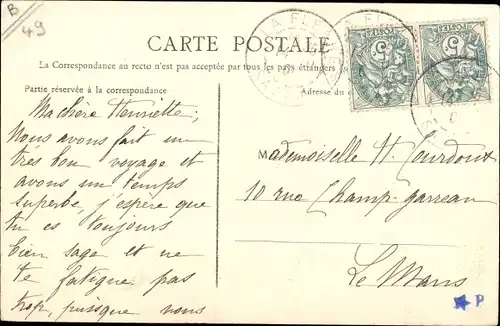 B
49
CARTE POSTALE
La Correspondance au recto n'est pas acceptée par tous les pays étrangers
Partie réservée à la correspondance
Adresse du
LA FL
5
5
POSTES
Ma chère Henriette,
Nous avons fait un
très bon voyage et
avons un temps
superbe, j'espère que
tu es toujours
bien sage et ne
te fatigue pas
trop, puisque nous
Mademoiselle H. Courdoux
10 rue Champ-garreau
Le Mans
P